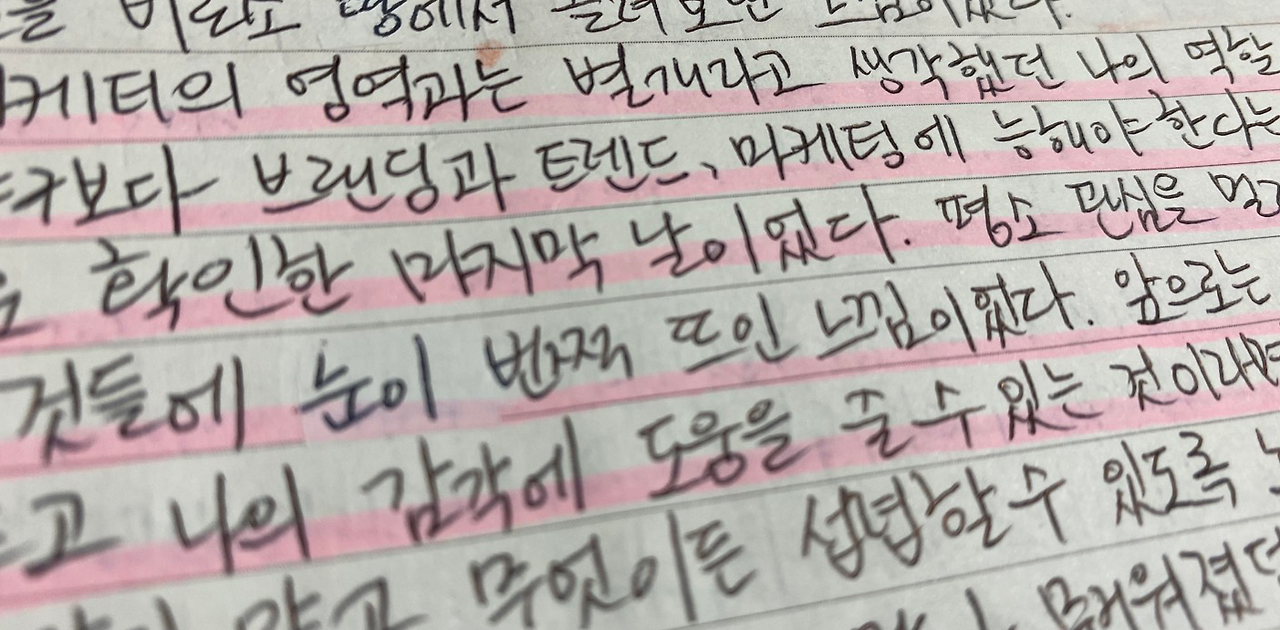 땅에서 느낌이었다.
케터의 영역과는 별개라고 생각했던 나의 역할
누구보다 브랜딩과 트렌드, 마케팅에 능해야 한다는
확인한 마지막 날이었다. 평소 관심을
것들에 눈이 번쩍 뜨인 느낌이었다. 앞으로는
고 나의 감각에 도움을 줄 수 있는 것이라면
말고 무엇이든 섭렵할 수 있도록